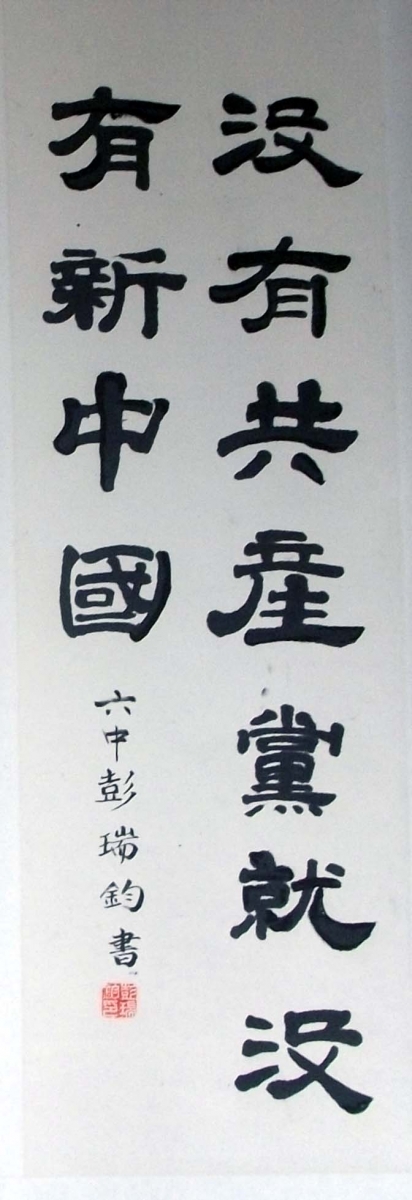 没有共産黨就没
有新中國
六中彭瑞鈞書